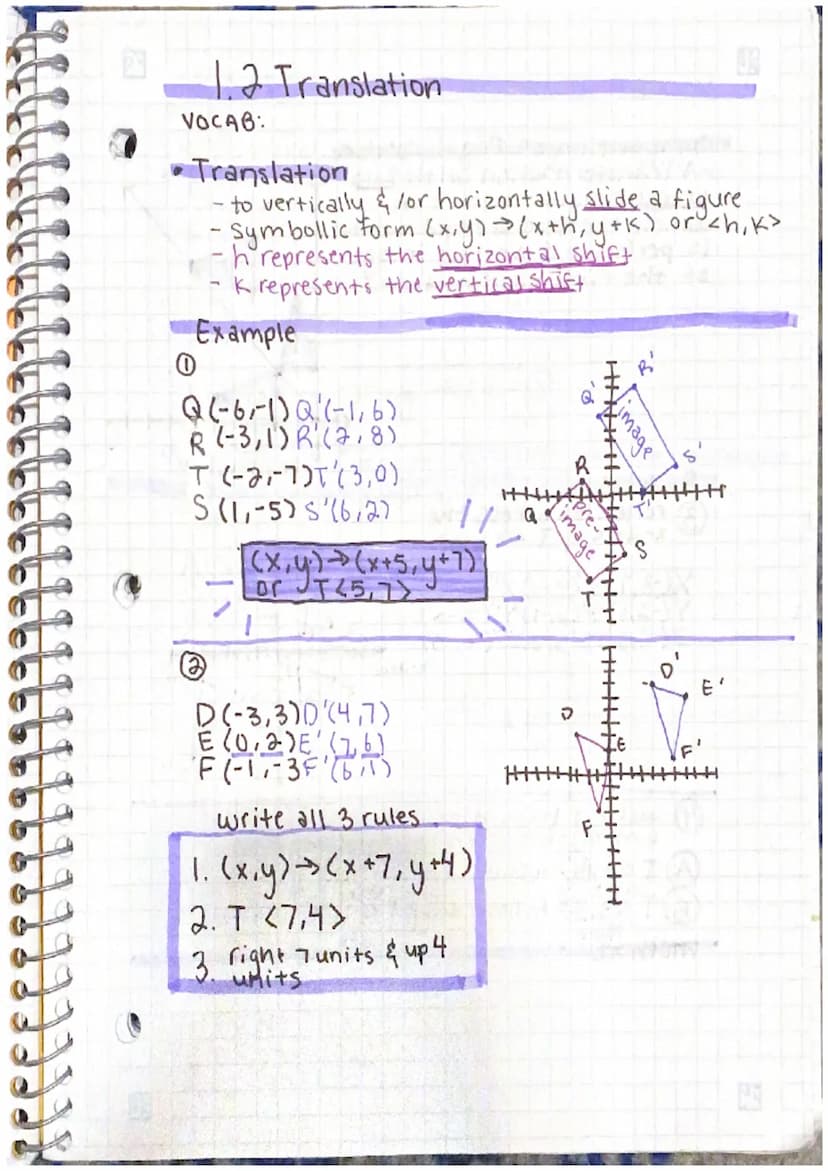 1.2 Translation
VOCAB:
• Translation
- to vertically & /or horizontally slide a figure
- Symbollic form (x,y)→(x+h, y+k) or <h,k>
- h represents the horizontal shift
- k represents the vertical shift
Example
①
Q(-6,-1) Q'(-1,6)
R (-3,1) R'(2,8)
T (-2,-7) T'(3,0)
S (1,-5) S'(6,2)
(x,y)→(x+5,y+7)
or T<5,7>
R'
Q'
image
S'
R
T'
Q
pre-
image
S
T
②
D(-3,3) D'(4,7)
E (0,2) E'(7,6)
F (-1,-3 F'(6,1)
write all 3 rules
1. (x,y)→(x+7,y+4)
2. T <7,4>
3. right 7 units & up 4
units
D'
E'
D
E
F'
F